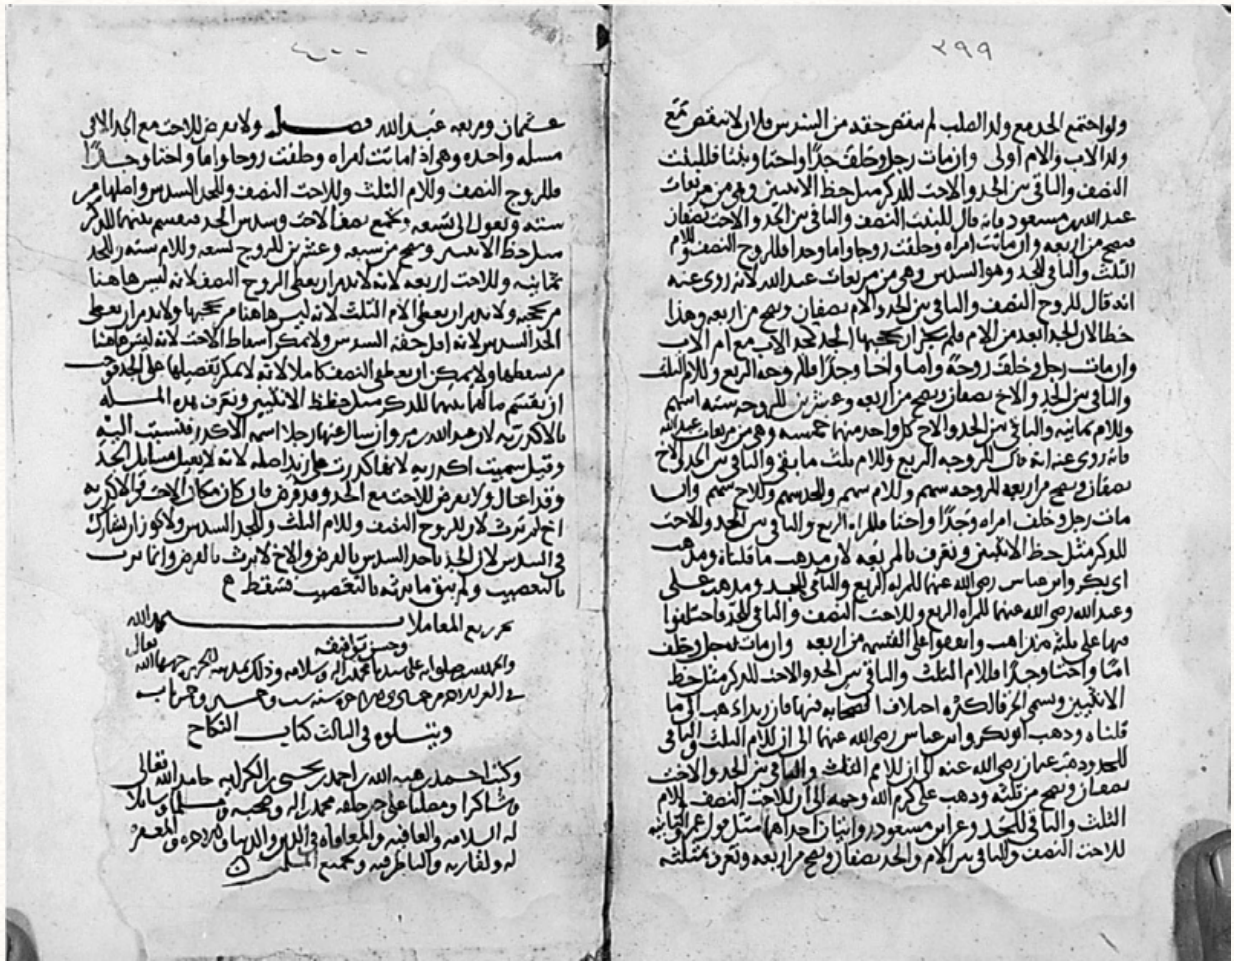 ٣٩٩
ولو اجتمع الجد مع ولد الصلب لم ينقص حقه من السدس فلان لا ينقص مع
ولد الاب والام اولى وان مات رجل وخلف جدا واختا وبنتا فللبنت
النصف والباقي بين الجد والاخت للذكر مثل حظ الانثيين وهي من مربعات
عبد الله بن مسعود فانه قال للبنت النصف والباقي بين الجد والاخت نصفان
وتصح من اربعه وان ماتت امراه وخلفت زوجا واما وجدا فللزوج النصف وللام
الثلث والباقي للجد وهو السدس وهي من مربعات عبد الله لانه روى عنه
انه قال للزوج النصف والباقي بين الجد والام نصفان وتصح من اربعه وهذا
خطا لان الجد ابعد من الام فلم يجز ان يحجبها كجد الاب مع ام الاب
وان مات رجل وخلف زوجة واما واخا وجدا فللزوجه الربع وللام الثلث
والباقي بين الجد والاخ نصفان وتصح من اربعه وعشرين للزوجه سته اسهم
وللام ثمانيه والباقي بين الجد والاخ كل واحد منهما خمسه وهي من مربعات عبد الله
فانه روى عنه انه قال للزوجه الربع وللام ثلث ما بقي والباقي بين الجد والاخ
نصفان وتصح من اربعه للزوجه سهم وللام سهم وللجد سهم وللاخ سهم وان
مات رجل وخلف امراه وجدا واختا فللمراه الربع والباقي بين الجد والاخت
للذكر مثل حظ الانثيين وتعرف بالمربعه لان مذهب ما قلناه ومذهب
ابي بكر وابن عباس رضي الله عنهما للمراه الربع والباقي للجد ومذهب علي
وعبد الله رضي الله عنهما للمراه الربع وللاخت النصف والباقي للجد فاختلفوا
فيها على ثلثه مذاهب واتفقوا على القسمه من اربعه وان مات رجل وخلف
اما واختا وجدا فللام الثلث والباقي بين الجد والاخت للذكر مثل حظ
الانثيين وتسمى الخرقا لكثره اختلاف الصحابه فيها فان زيدا ذهب الى ما
قلناه وذهب ابو بكر وابن عباس رضي الله عنهما الى ان للام الثلث والباقي
للجد وذهب عثمان رضي الله عنه الى ان للام الثلث والباقي بين الجد والاخت
نصفان وتصح من ثلثه وذهب علي كرم الله وجهه الى ان للاخت النصف وللام
الثلث والباقي للجد وعن ابن مسعود روايتان احداهما مثل قول عمر والثانيه
للاخت النصف والباقي بين الام والجد نصفان وتصح من اربعه وتعرف بمثلثه
٤٠٠
عثمان ومربعه عبد الله فصل ولا يفرض للاخت مع الجد الا في
مسله واحده وهي اذا ماتت امراه وخلفت زوجا واما واختا وجدا
فللزوج النصف وللام الثلث وللاخت النصف وللجد السدس واصلها من
سته وتعول الى تسعه ويجمع نصف الاخت وسدس الجد فيقسم بينهما للذكر
مثل حظ الانثيين وتصح من سبعه وعشرين للزوج تسعه وللام سته وللجد
ثمانيه وللاخت اربعه لانه لا بد ان يعطى الزوج النصف لانه ليس هاهنا
من يحجبه ولا بد من ان يعطى الام الثلث لانه ليس هاهنا من يحجبها ولا بد من ان يعطى
الجد السدس لانه اقل حقه السدس ولا يمكن اسقاط الاخت لانه ليس هاهنا
من يسقطها ولا يمكن ان يعطى النصف كاملا لانه لا يمكن تفضيلها على الجد فوجب
ان يقسم مالهما بينهما للذكر مثل حظ الانثيين وتعرف هذه المسله
بالاكدريه لان عبد الملك بن مروان سال عنها رجلا اسمه الاكدر فنسبت اليه
وقيل سميت اكدريه لانها كدرت على زيد اصله لانه لا يعيل مسايل الجد
وقد اعال ولا يفرض للاخت مع الجد وقد فرض فان كان مكان الاخت في الاكدريه
اخ لم يرث لان للزوج النصف وللام الثلث وللجد السدس ولا يجوز ان يشارك
في السدس لان الجد ياخذ السدس بالفرض والاخ لا يرث بالفرض وانما يرث
بالتعصيب ولم يبق ما يرثه بالتعصيب فسقط
تم ربع المعاملات بحمد الله
وحسن توفيقه
ويتلوه في الثالث كتاب النكاح
وكتب احمد بن هبه الله بن احمد بن يحيى حامدا لله تعالى
وشاكرا ومصليا على خير خلقه محمد واله وصحبه ومسلما وسائلا
له السلامه والعافيه والمعافاه في الدين والدنيا والاخره والمغفره
له ولقاريه والناظر فيه ولجميع المسلمين